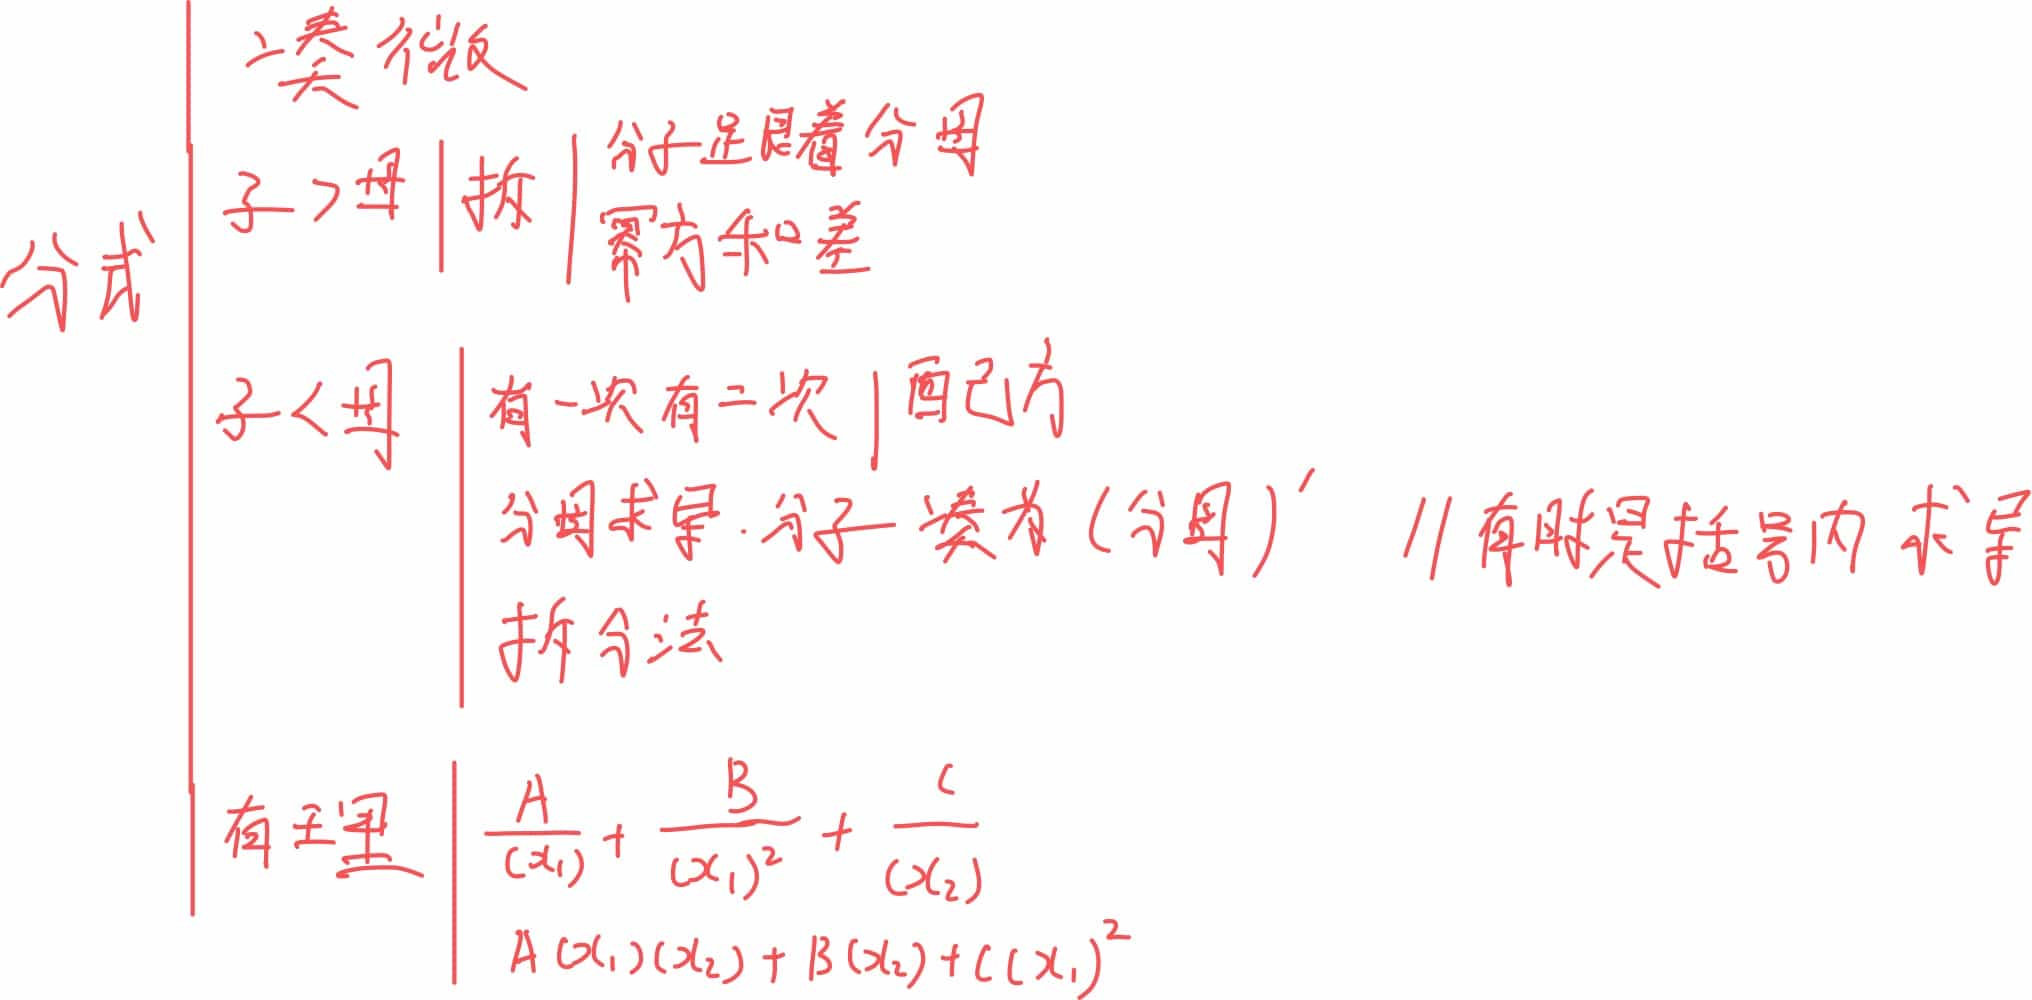 凑微
子>母 拆 分子跟着分母
幂方和差
分式
子<母 有一次有二次 配方
分母求导.分子凑为(分母)′ //有时是括号内求导
拆分法
有理 A/(x₁) + B/(x₁)² + C/(x₂)
A(x₁)(x₂)+B(x₂)+C(x₁)²